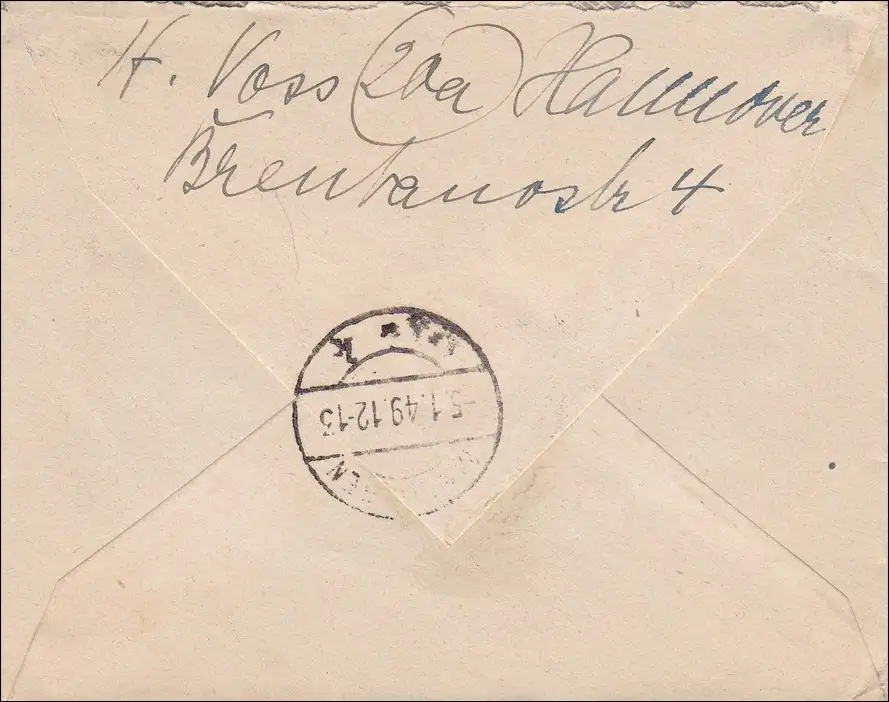 H. Voss (20a) Hannover
Brentanostr 4
-5.1.49.12-13